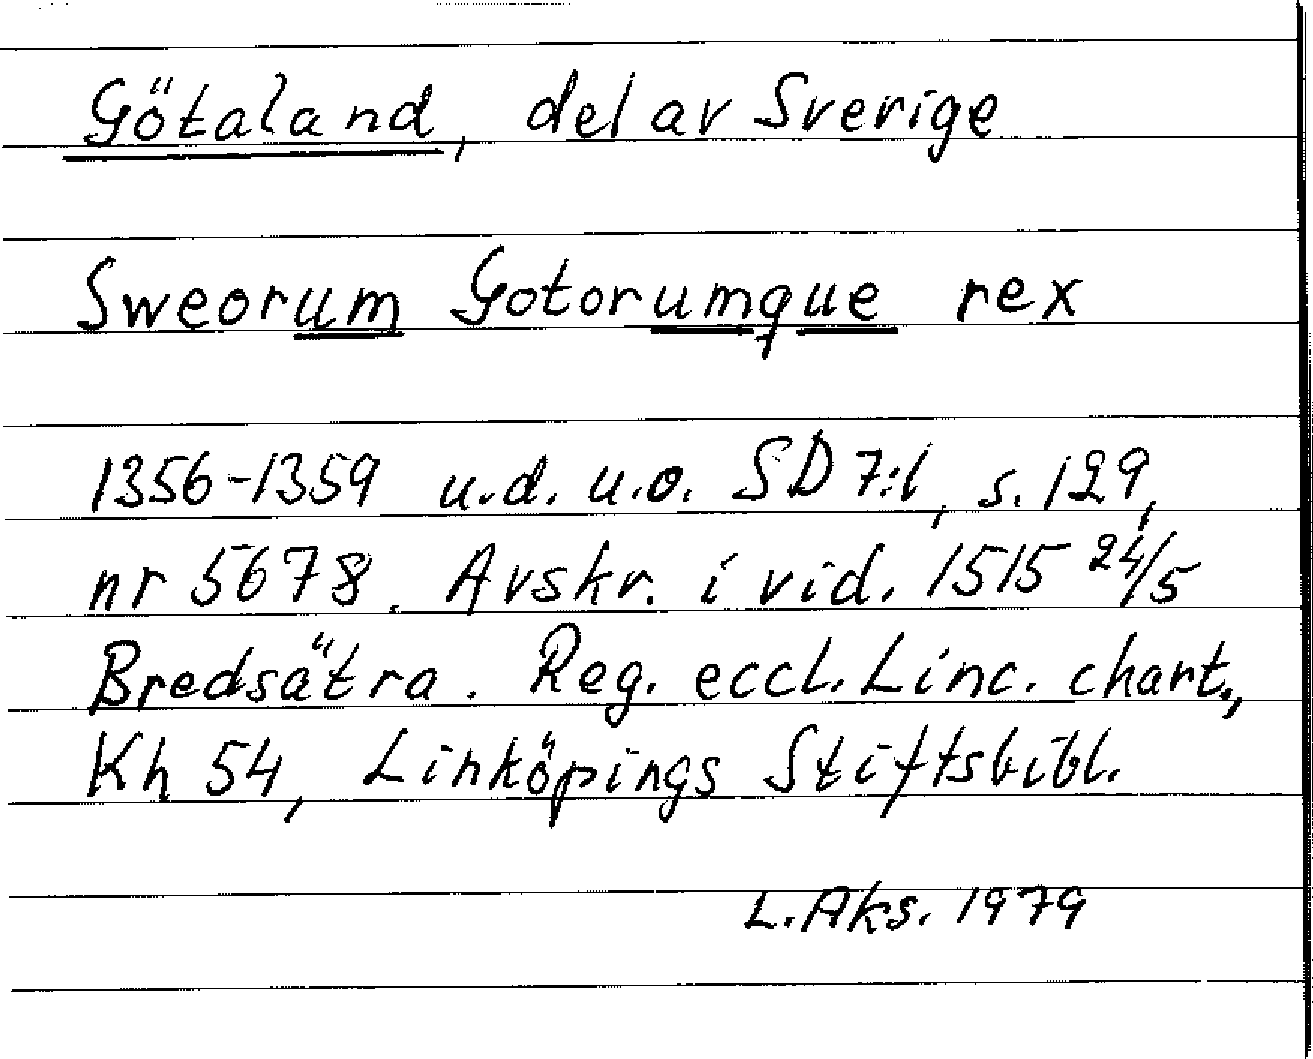 Götaland, del av Sverige
Sweorum Gotorumque rex
1356-1359 u.d. u.o. SD 7:1, s. 129,
nr 5678. Avskr. i vid. 1515 24/5
Bredsätra. Reg. eccl. Linc. chart.,
Kh 54, Linköpings Stiftsbibl.
L. Aks. 1979